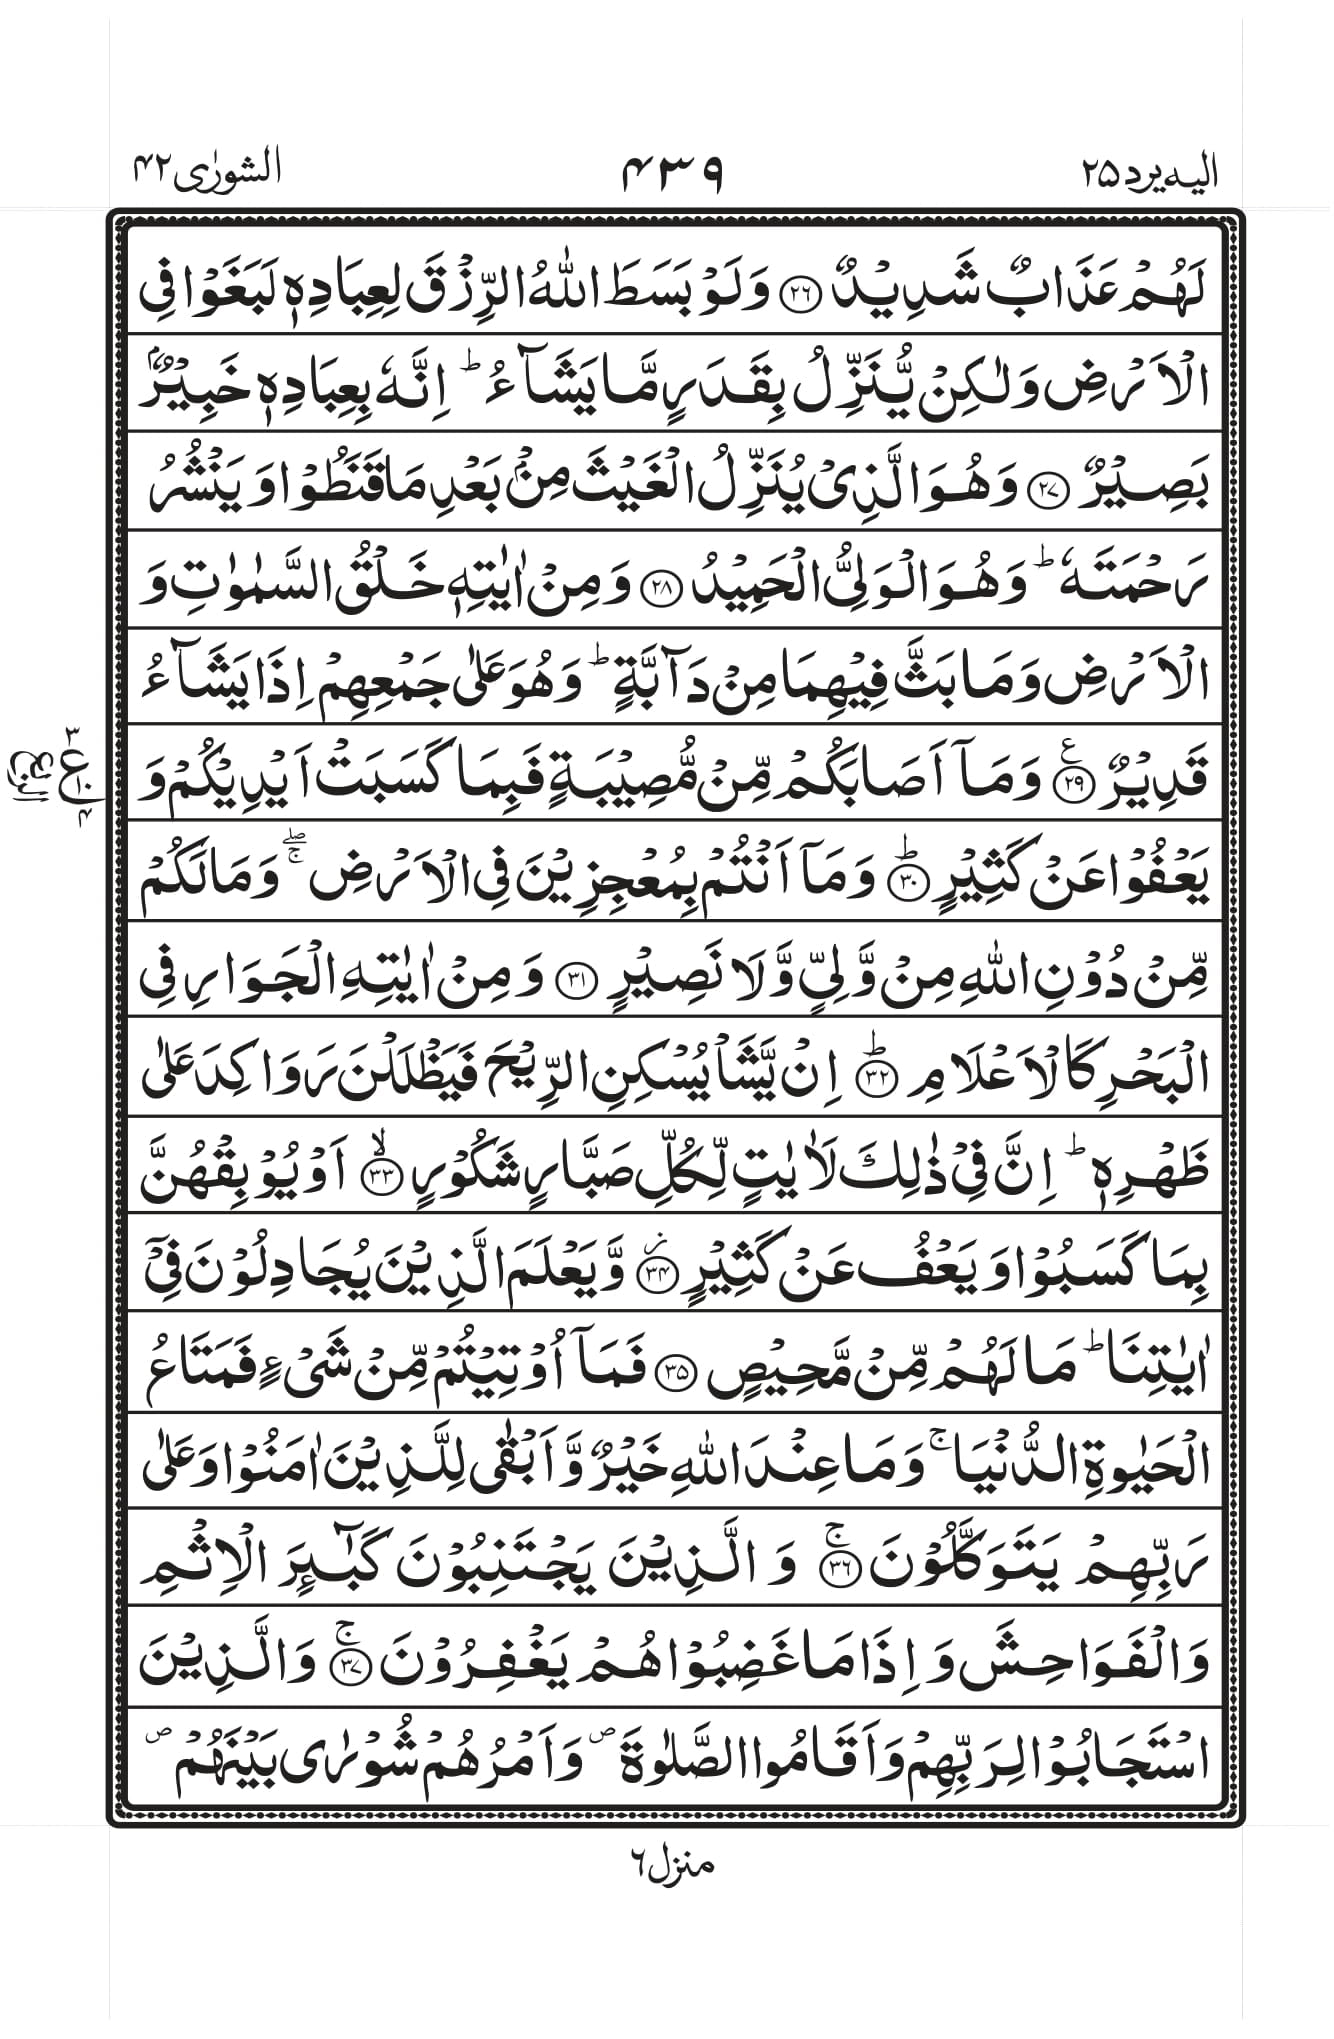 الیه یرد ۲۵
۴۳۹
الشورٰی ۴۲
لَهُمْ عَذَابٌ شَدِیْدٌ ﴿۲۶﴾ وَلَوْ بَسَطَ اللّٰهُ الرِّزْقَ لِعِبَادِهٖ لَبَغَوْا فِی
الْاَرْضِ وَلٰكِنْ یُّنَزِّلُ بِقَدَرٍ مَّا یَشَآءُ ؕ اِنَّهٗ بِعِبَادِهٖ خَبِیْرٌۢ
بَصِیْرٌ ﴿۲۷﴾ وَهُوَ الَّذِیْ یُنَزِّلُ الْغَیْثَ مِنْۢ بَعْدِ مَا قَنَطُوْا وَ یَنْشُرُ
رَحْمَتَهٗ ؕ وَهُوَ الْوَلِیُّ الْحَمِیْدُ ﴿۲۸﴾ وَمِنْ اٰیٰتِهٖ خَلْقُ السَّمٰوٰتِ وَ
الْاَرْضِ وَمَا بَثَّ فِیْهِمَا مِنْ دَآبَّةٍ ؕ وَهُوَ عَلٰی جَمْعِهِمْ اِذَا یَشَآءُ
قَدِیْرٌ ﴿۲۹﴾ ع وَمَاۤ اَصَابَكُمْ مِّنْ مُّصِیْبَةٍ فَبِمَا كَسَبَتْ اَیْدِیْكُمْ وَ
۳
ع
۱۰
۴
یَعْفُوْا عَنْ كَثِیْرٍ ﴿۳۰﴾ؕ وَمَاۤ اَنْتُمْ بِمُعْجِزِیْنَ فِی الْاَرْضِ ۚۖ وَمَا لَكُمْ
مِّنْ دُوْنِ اللّٰهِ مِنْ وَّلِیٍّ وَّلَا نَصِیْرٍ ﴿۳۱﴾ وَمِنْ اٰیٰتِهِ الْجَوَارِ فِی
الْبَحْرِ كَالْاَعْلَامِ ﴿۳۲﴾ؕ اِنْ یَّشَاْ یُسْكِنِ الرِّیْحَ فَیَظْلَلْنَ رَوَاكِدَ عَلٰی
ظَهْرِهٖ ؕ اِنَّ فِیْ ذٰلِكَ لَاٰیٰتٍ لِّكُلِّ صَبَّارٍ شَكُوْرٍ ﴿۳۳﴾ۙ اَوْ یُوْبِقْهُنَّ
بِمَا كَسَبُوْا وَ یَعْفُ عَنْ كَثِیْرٍ ﴿۳۴﴾ؗ وَّ یَعْلَمَ الَّذِیْنَ یُجَادِلُوْنَ فِیْۤ
اٰیٰتِنَا ؕ مَا لَهُمْ مِّنْ مَّحِیْصٍ ﴿۳۵﴾ فَمَاۤ اُوْتِیْتُمْ مِّنْ شَیْءٍ فَمَتَاعُ
الْحَیٰوةِ الدُّنْیَا ۚ وَمَا عِنْدَ اللّٰهِ خَیْرٌ وَّ اَبْقٰی لِلَّذِیْنَ اٰمَنُوْا وَعَلٰی
رَبِّهِمْ یَتَوَكَّلُوْنَ ﴿۳۶﴾ۚ وَ الَّذِیْنَ یَجْتَنِبُوْنَ كَبٰٓىِٕرَ الْاِثْمِ
وَالْفَوَاحِشَ وَ اِذَا مَا غَضِبُوْا هُمْ یَغْفِرُوْنَ ﴿۳۷﴾ۚ وَالَّذِیْنَ
اسْتَجَابُوْا لِرَبِّهِمْ وَاَقَامُوا الصَّلٰوةَ ۪ وَاَمْرُهُمْ شُوْرٰی بَیْنَهُمْ ۪
منزل ۶